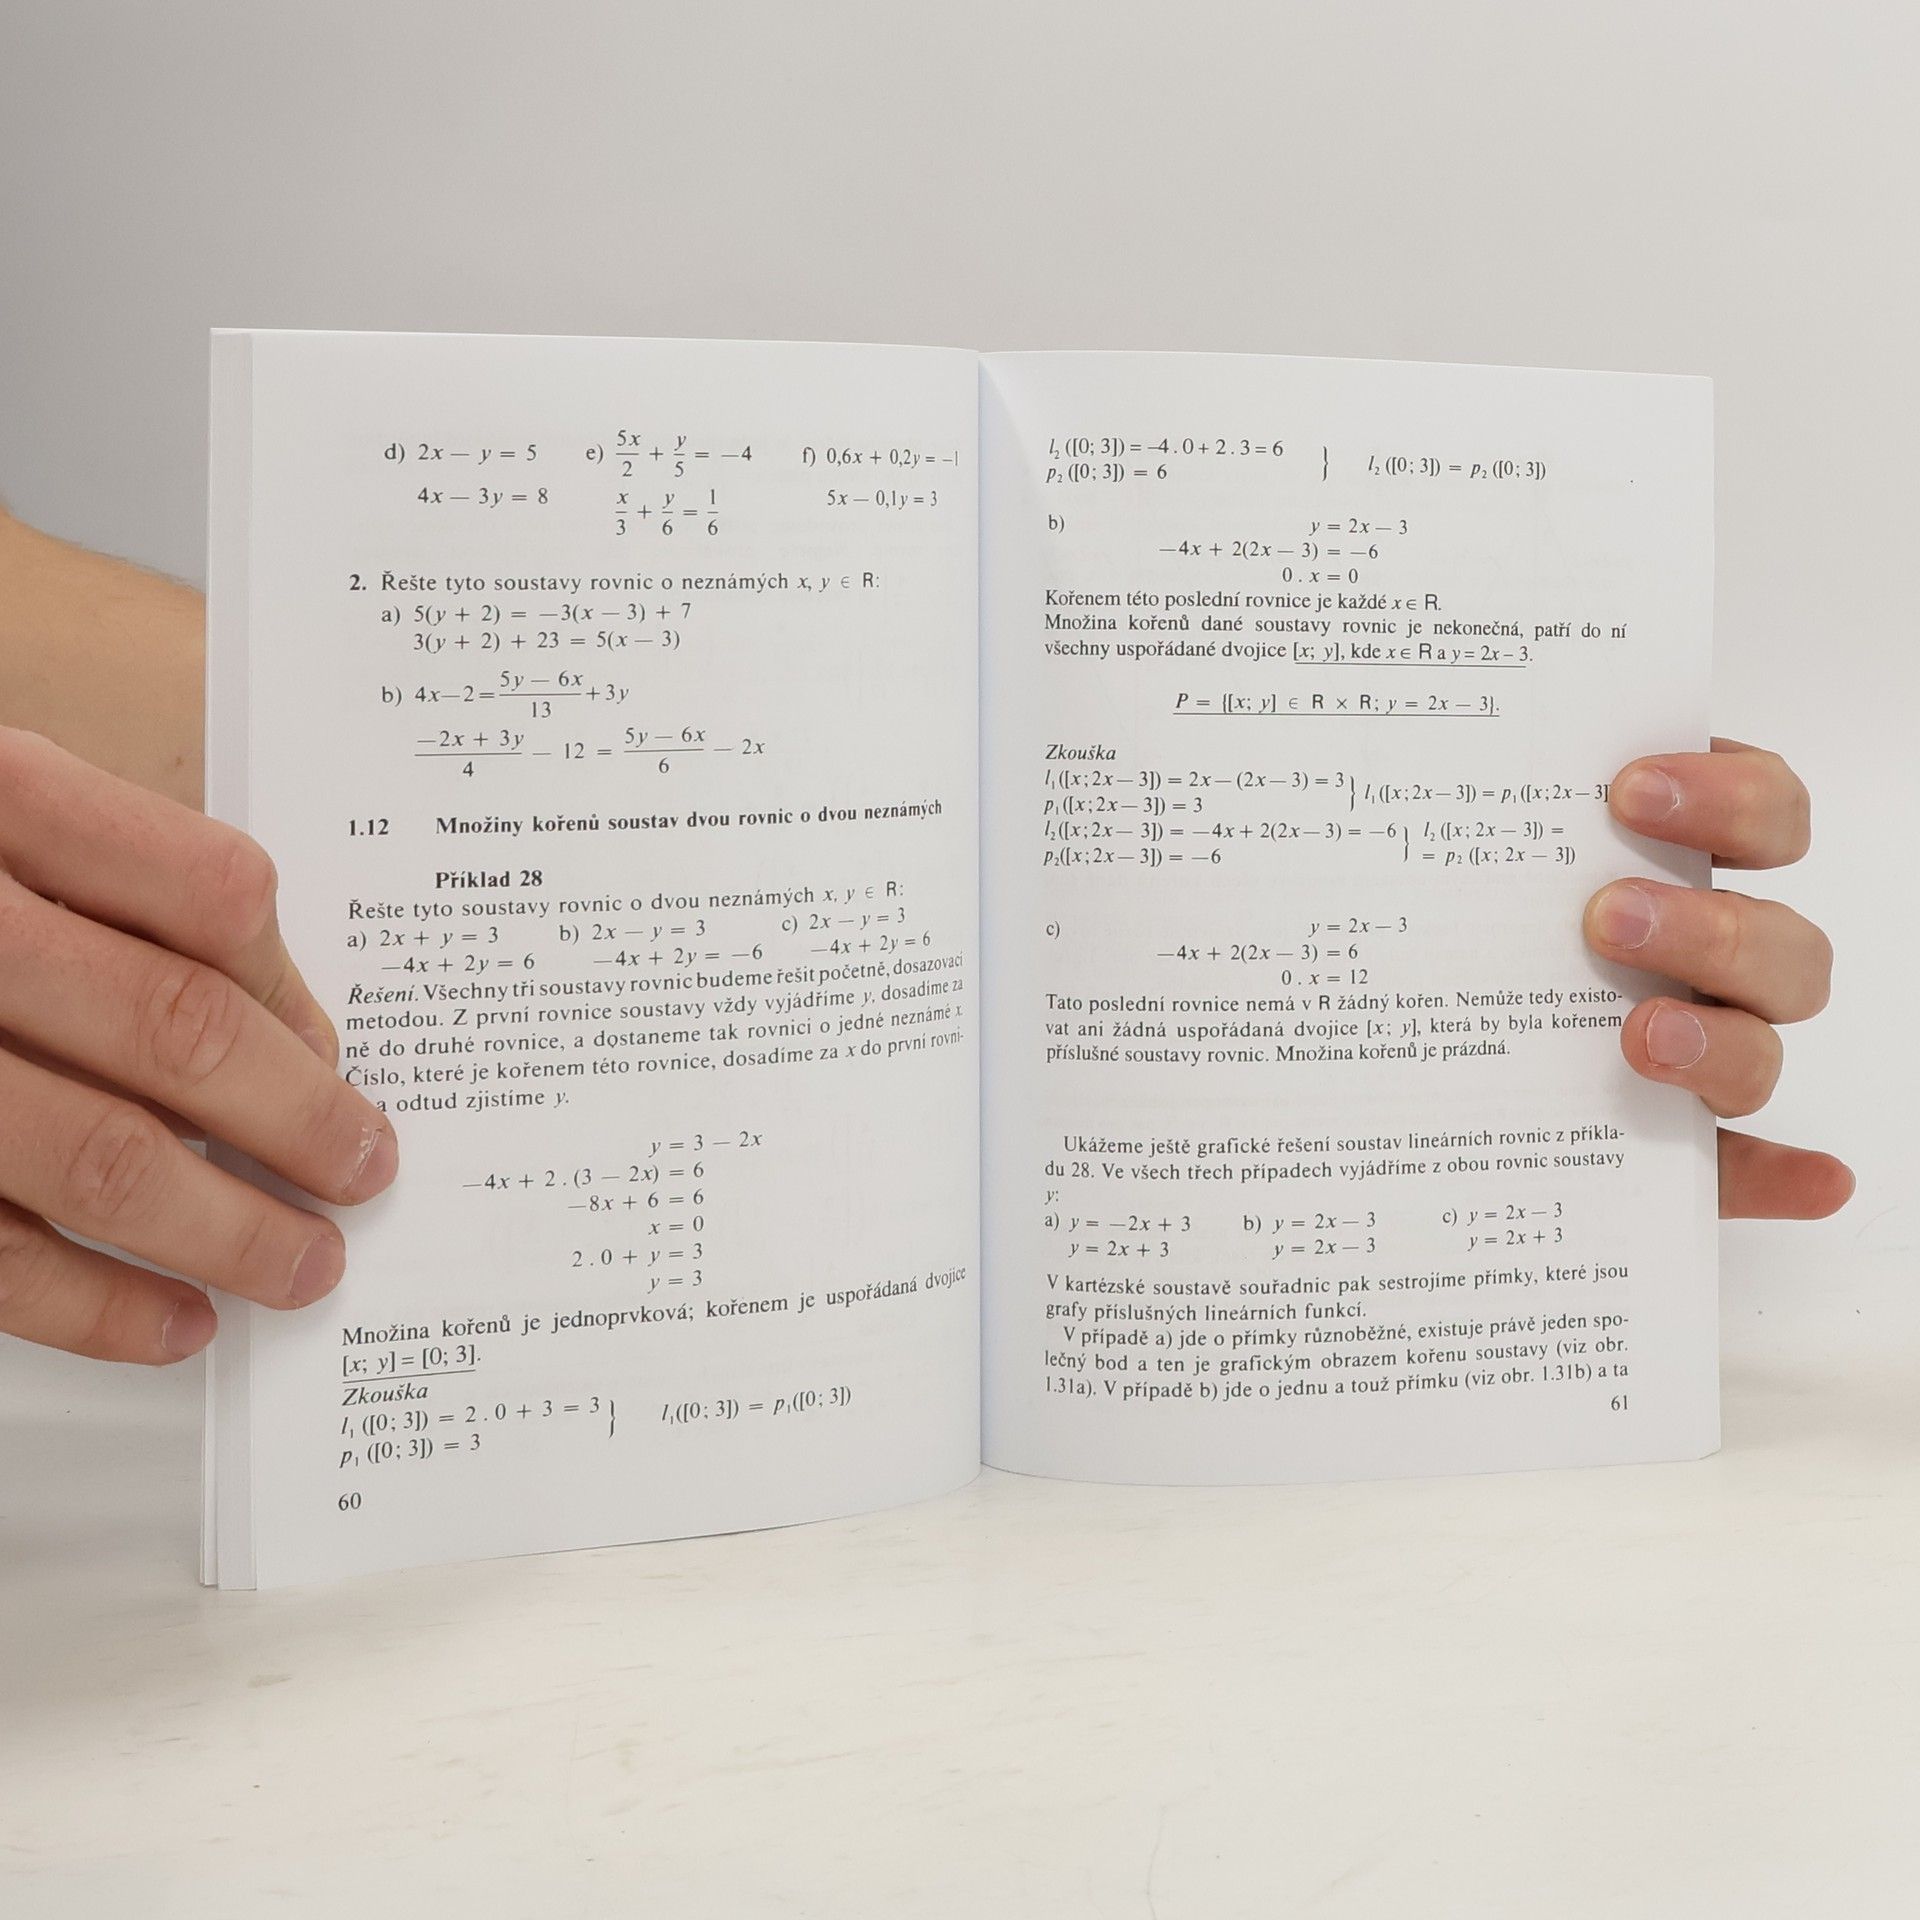 d) 2x — y = 5 e) 5x/2 + y/5 = —4 f) 0,6x + 0,2y = —1
4x — 3y = 8 x/3 + y/6 = 1/6 5x — 0,1y = 3
2. Řešte tyto soustavy rovnic o neznámých x, y ∈ R:
a) 5(y + 2) = —3(x — 3) + 7
3(y + 2) + 23 = 5(x — 3)
b) 4x—2=(5y — 6x)/13+3y
(—2x + 3y)/4 — 12 = (5y — 6x)/6 — 2x
1.12 Množiny kořenů soustav dvou rovnic o dvou neznámých
Příklad 28
Řešte tyto soustavy rovnic o dvou neznámých x, y ∈ R:
a) 2x + y = 3 b) 2x — y = 3 c) 2x — y = 3
—4x + 2y = 6 —4x + 2y = —6 —4x + 2y = 6
Řešení. Všechny tři soustavy rovnic budeme řešit početně, dosazovací
metodou. Z první rovnice soustavy vždy vyjádříme y, dosadíme za
ně do druhé rovnice, a dostaneme tak rovnici o jedné neznámé x.
Číslo, které je kořenem této rovnice, dosadíme za x do první rovni-
a odtud zjistíme y.
y = 3 — 2x
—4x + 2 . (3 — 2x) = 6
—8x + 6 = 6
x = 0
2 . 0 + y = 3
y = 3
Množina kořenů je jednoprvková; kořenem je uspořádaná dvojice
[x; y] = [0; 3].
Zkouška
l₁ ([0; 3]) = 2 . 0 + 3 = 3 } l₁([0; 3]) = p₁([0; 3])
p₁ ([0; 3]) = 3
60
l₂ ([0; 3]) = —4 . 0 + 2 . 3 = 6 } l₂ ([0; 3]) = p₂ ([0; 3])
p₂ ([0; 3]) = 6
b) y = 2x — 3
—4x + 2(2x — 3) = —6
0 . x = 0
Kořenem této poslední rovnice je každé x ∈ R.
Množina kořenů dané soustavy rovnic je nekonečná, patří do ní
všechny uspořádané dvojice [x; y], kde x ∈ R a y = 2x — 3.
P = {[x; y] ∈ R × R; y = 2x — 3}.
Zkouška
l₁([x; 2x — 3]) = 2x — (2x — 3) = 3 } l₁([x; 2x — 3]) = p₁([x; 2x — 3]
p₁([x; 2x — 3]) = 3
l₂([x; 2x — 3]) = —4x + 2(2x — 3) = —6 } l₂ ([x; 2x — 3]) =
p₂([x; 2x — 3]) = —6 = p₂ ([x; 2x — 3])
c) y = 2x — 3
—4x + 2(2x — 3) = 6
0 . x = 12
Tato poslední rovnice nemá v R žádný kořen. Nemůže tedy existo-
vat ani žádná uspořádaná dvojice [x; y], která by byla kořenem
příslušné soustavy rovnic. Množina kořenů je prázdná.
Ukážeme ještě grafické řešení soustav lineárních rovnic z příkla-
du 28. Ve všech třech případech vyjádříme z obou rovnic soustavy
y:
a) y = —2x + 3 b) y = 2x — 3 c) y = 2x — 3
y = 2x + 3 y = 2x — 3 y = 2x + 3
V kartézské soustavě souřadnic pak sestrojíme přímky, které jsou
grafy příslušných lineárních funkcí.
V případě a) jde o přímky různoběžné, existuje právě jeden spo-
lečný bod a ten je grafickým obrazem kořenu soustavy (viz obr.
1.31a). V případě b) jde o jednu a touž přímku (viz obr. 1.31b) a ta
61